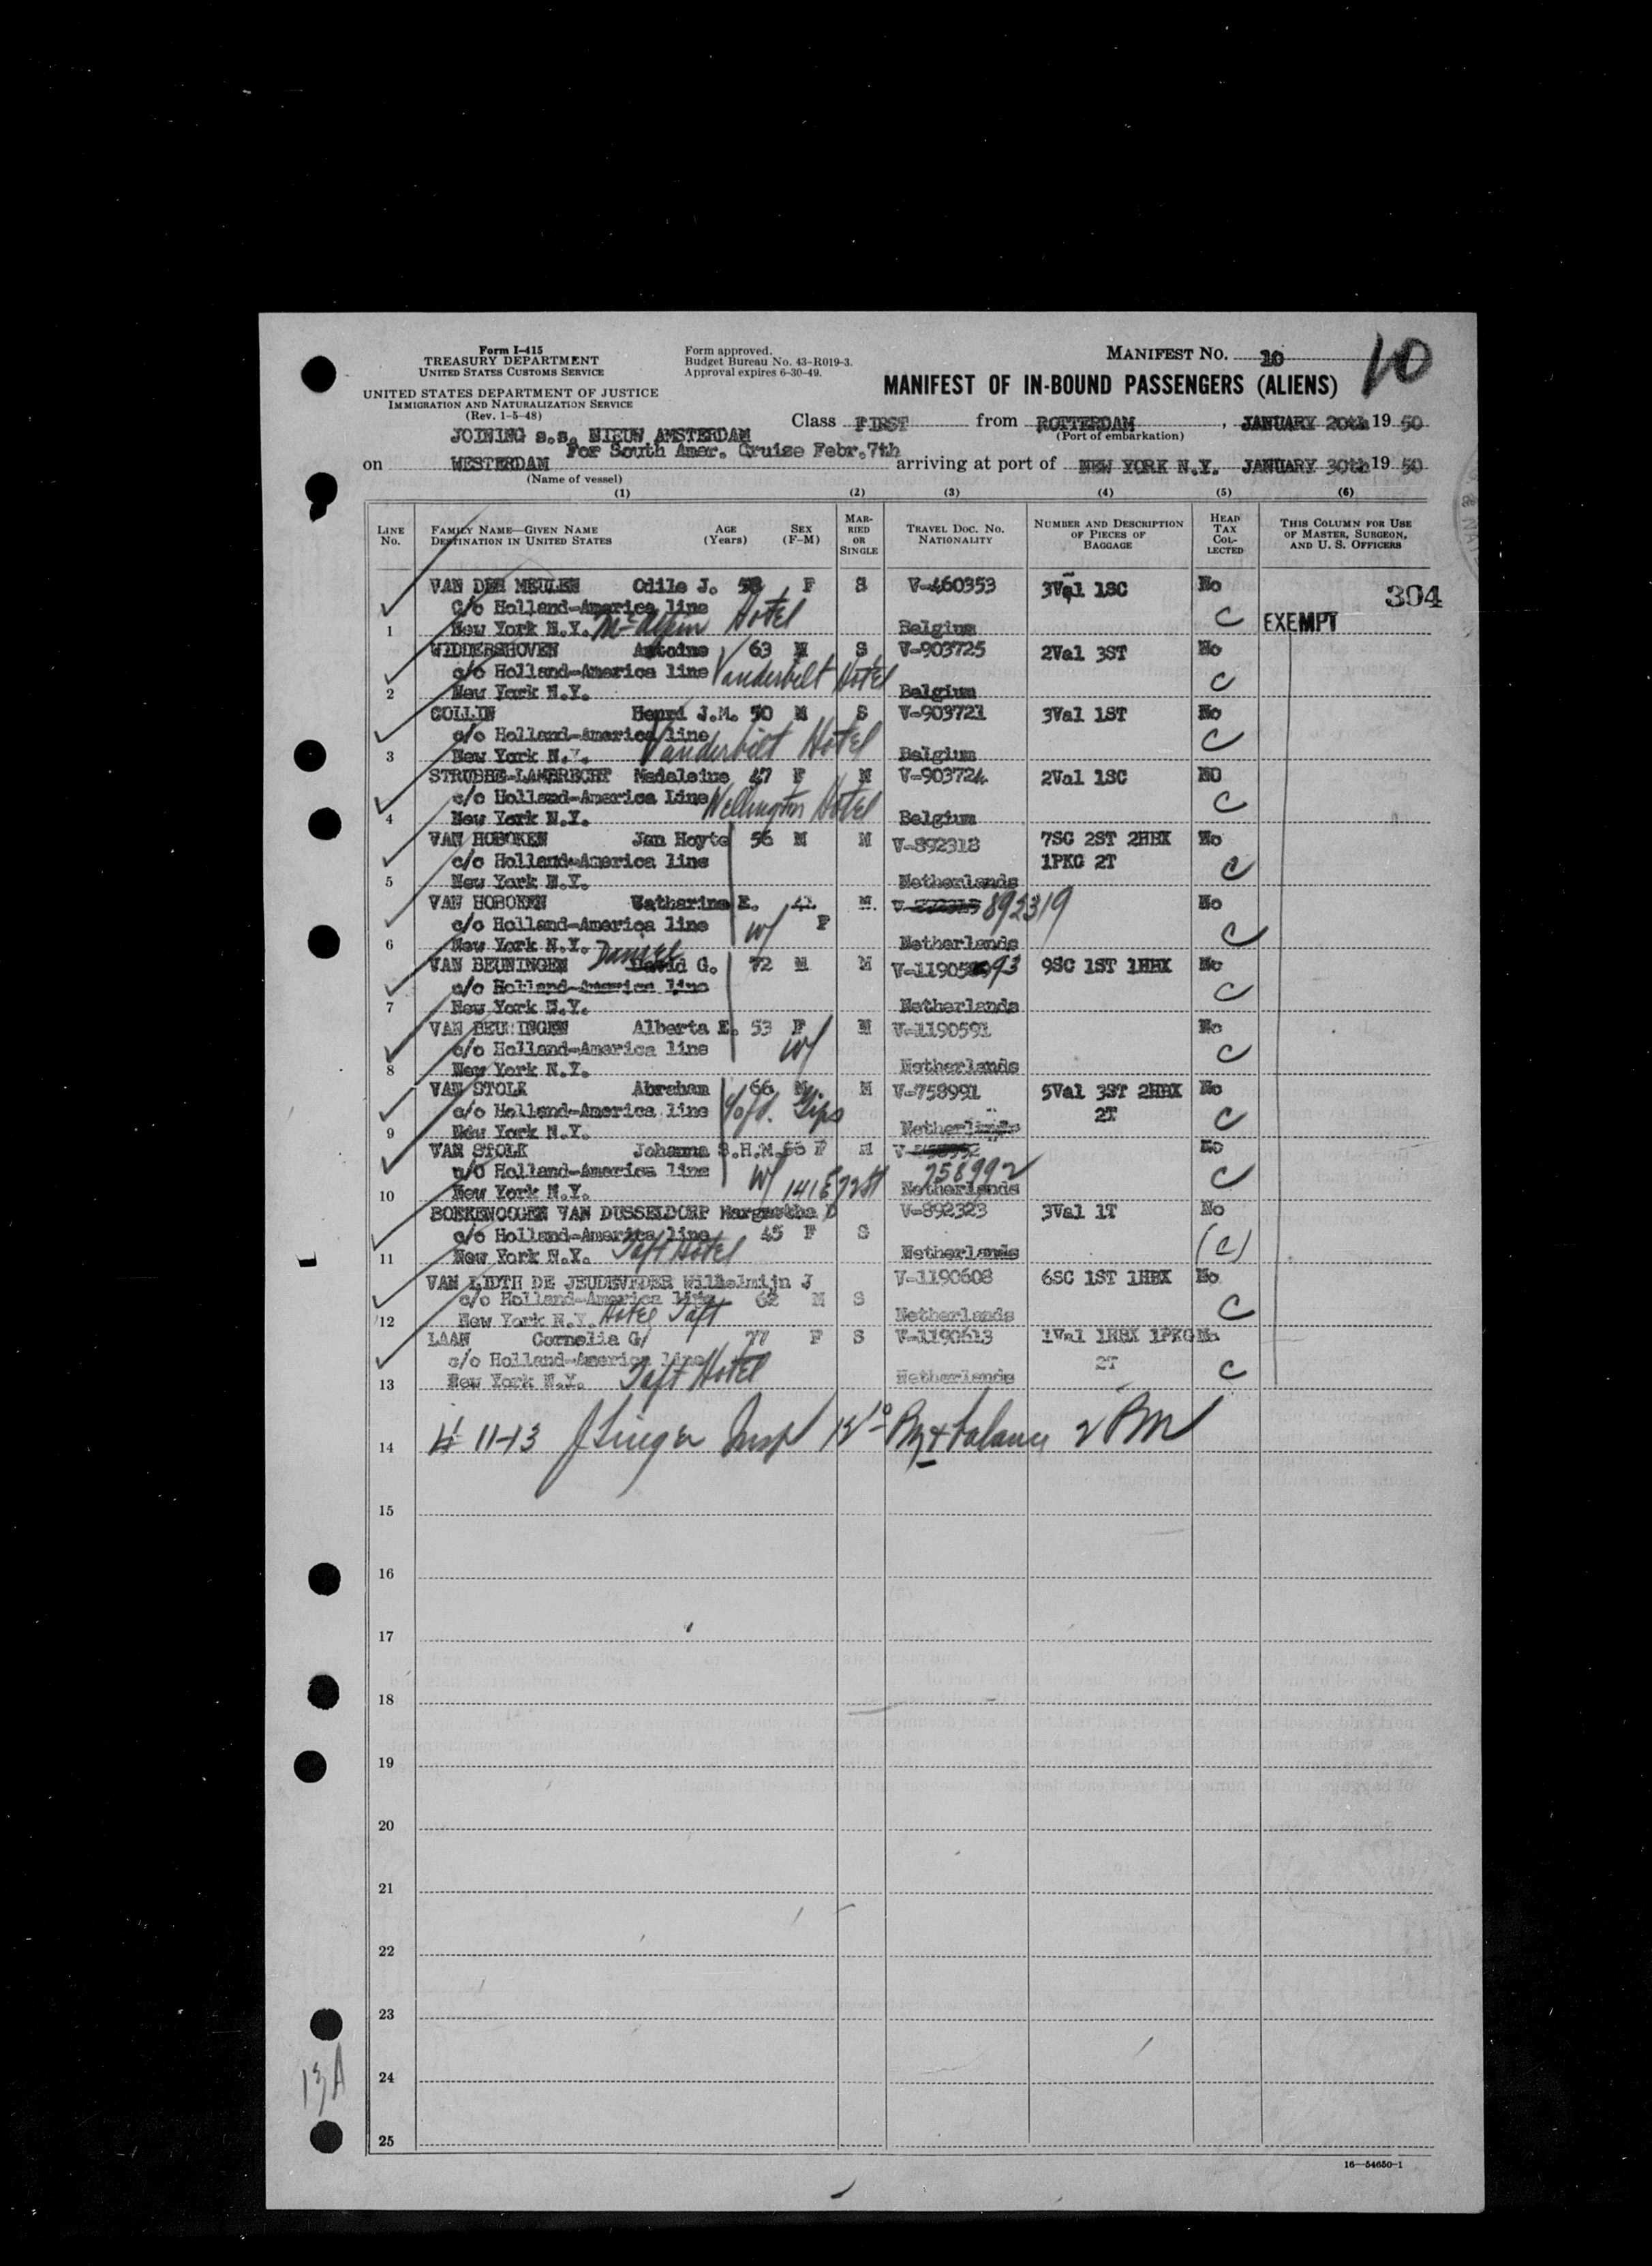 Form I-415
TREASURY DEPARTMENT
UNITED STATES CUSTOMS SERVICE
UNITED STATES DEPARTMENT OF JUSTICE
IMMIGRATION AND NATURALIZATION SERVICE
(Rev. 1-5-48)
Form approved.
Budget Bureau No. 43-R019-3.
Approval expires 6-30-49.
MANIFEST NO. 10
10
MANIFEST OF IN-BOUND PASSENGERS (ALIENS)
Class FIRST from ROTTERDAM, JANUARY 20th 19 50
(Port of embarkation)
JOINING s.s. NIEUW AMSTERDAM
For South Amer. Cruise Febr. 7th
on WESTERDAM arriving at port of NEW YORK N.Y. JANUARY 30th 19 50
(Name of vessel)
(1) (2) (3) (4) (5) (6)
LINE No. FAMILY NAME—GIVEN NAME DESTINATION IN UNITED STATES AGE (Years) SEX (F-M) MARRIED OR SINGLE TRAVEL DOC. NO. NATIONALITY NUMBER AND DESCRIPTION OF PIECES OF BAGGAGE HEAD TAX COLLECTED THIS COLUMN FOR USE OF MASTER, SURGEON, AND U. S. OFFICERS
VAN DER MEULEN Odile J. 58 F S V-460353 3Val 1SC No 304
C/o Holland-America line
1 New York N.Y. McAlpin Hotel Belgium C EXEMPT
WIDDERSHOVEN Antoine 63 M S V-903725 2Val 3ST No
c/o Holland-America line Vanderbilt Hotel
2 New York N.Y. Belgium C
COLLIN Henri J.M. 50 M S V-903721 3Val 1ST No
c/o Holland-America line
3 New York N.Y. Vanderbilt Hotel Belgium C
STRUBBE-LAMBRECHT Madeleine 47 F M V-903724 2Val 1SC NO
c/o Holland-America Line Wellington Hotel
4 New York N.Y. Belgium C
VAN HOBOKEN Jan Hoyte 56 M M V-892318 7SC 2ST 2HBX No
c/o Holland-America line 1PKG 2T
5 New York N.Y. Netherlands C
VAN HOBOKEN Catharina E. 41 M. V- 892319 No
c/o Holland-America line W/ F
6 New York N.Y. Netherlands C
VAN BEUNINGEN Daniel David G. 72 M M V-11905 93 9SC 1ST 1HBX No
c/o Holland-America line
7 New York N.Y. Netherlands C
VAN BEUNINGEN Alberta E. 53 F M V-1190591 No
c/o Holland-America line W/
8 New York N.Y. Netherlands C
VAN STOLK Abraham 66 M M V-758991 5Val 3ST 2HBX No
c/o Holland-America line 2T
9 New York N.Y. Netherlands C
VAN STOLK Johanna S.H.M. 66 F M V- 758992 No
c/o Holland-America line W/ 141 E 72 St
10 New York N.Y. Netherlands C
BOEKENOOGEN VAN DUSSELDORP Margaretha D V-892323 3Val 1T No
c/o Holland-America line 45 F S
11 New York N.Y. Taft Hotel Netherlands (C)
VAN LIDTH DE JEUDEVEDER Wilhelmijn J V-1190608 6SC 1ST 1HBX No
c/o Holland-America line 62 M S
12 New York N.Y. Hotel Taft Netherlands C
LAAN Cornelia G/ 77 F S V-1190613 1Val 1HBX 1PKG No
c/o Holland-America line 2T
13 New York N.Y. Taft Hotel Netherlands C
14 # 11-13 J Singer Insp 12 10 Pm + balance 2 PM
15
16
17
18
19
20
21
22
23
24
25
13A
16—54650-1